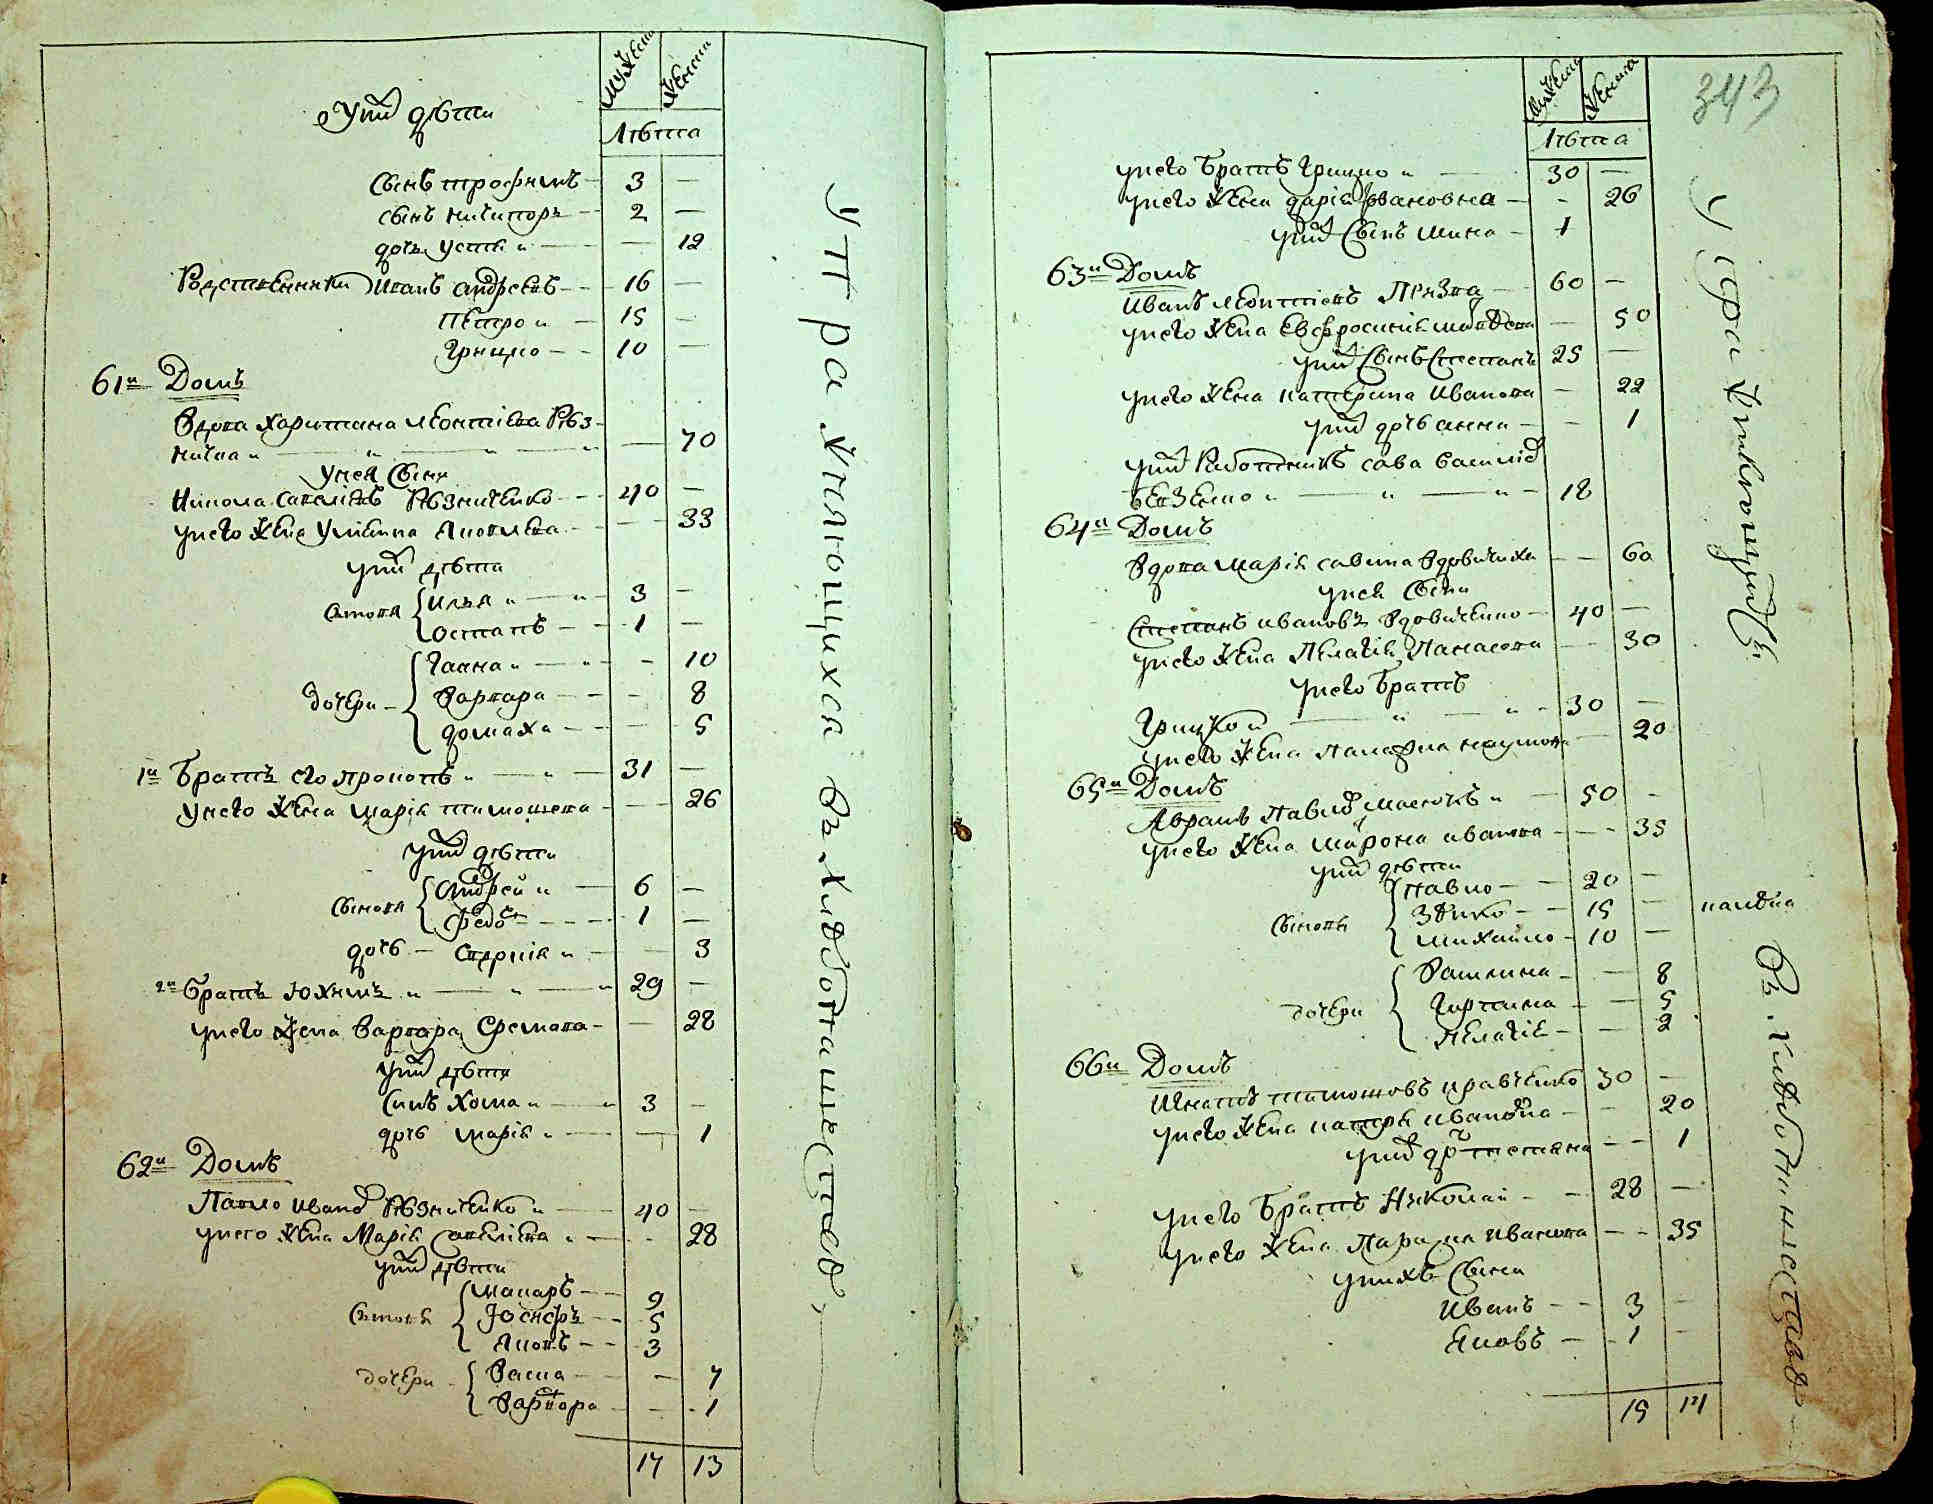 мужеска
женска
Уних дѣти
Лѣта
сынъ трофимъ — 3 —
сынъ ничипоръ — 2 —
дочъ устя — — 12
Родственники Иванъ андреевъ — 16 —
Петро — 15 —
Грицко — 10 —
61й Домъ
Вдова Харитана леонтіева Рѣз
ничка — — 70
Унея сыни
Никола савелиевъ Рѣзниченко — 40 —
унего жена Ульяна Яковлева — — 33
уних дѣти
сынови { илья — 3 —
остапъ — 1 —
дочери { Ганна — — 10
Варвара — — 8
домаха — — 5
1й Братъ его прокопъ — 31 —
Унего жена марія тимошева — — 26
уних дѣти
сынови { андрей — 6 —
федоръ — 1 —
дочь —
3
2й Братъ Юхимъ — 29 —
унего жена варвара Еремова — — 28
уних дѣти
синъ хома — 3 —
дочь марія — — 1
62й Домъ
Павло Иванов Рѣзниченко — 40 —
унего жена Марія савелієва — — 28
уних дѣти
синови { макаръ — 9
Юсифъ — 5
Яковъ — 3
дочери { Васка — — 7
Варвара — — 1
17 13
Утра жняющихся въ
343
мужеска
женска
Лѣта
унего братъ грицко — 30 —
унего жена дарія Ивановна — — 26
уних сынъ мина — 1
63й Домъ
Иванъ леонтіевъ — 60 —
унего жена Евфросинія — 50
уних сынъ Степанъ 25 —
унего жена катерина Иванова — 22
уних дочь анна — — 1
уних Работникъ сава василіев
— 18
64й Домъ
Вдова марія савина вдовичиха — — 60
унея сыни
Степанъ ивановъ вдовиченко — 40 —
унего жена Пелагія Панасова — 30
унего братъ
Грицко — 30 —
унего жена наумова — 20
65й Домъ
Аврамъ Павлов — 50 —
унего жена иванова — — 35
уних дѣти
сынови { павло — 20 —
15 —
михайло — 10 —
дочери { Василина — — 8
Гортина — — 5
пелагіе — — 2
66й Домъ
Игнатъ тимошовъ кравченко 30 —
унего жена иванова — — 20
уних дочь — — 1
унего братъ Николай — 28 —
унего жена иванова — — 35
унихъ сыни
иванъ — 3 —
Яковъ — 1 —
15 14